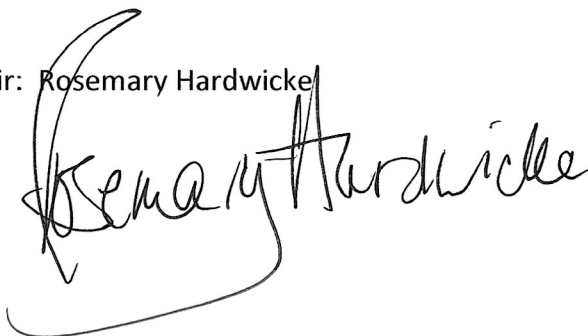 ir: Rosemary Hardwicke
Rosemary Hardwicke